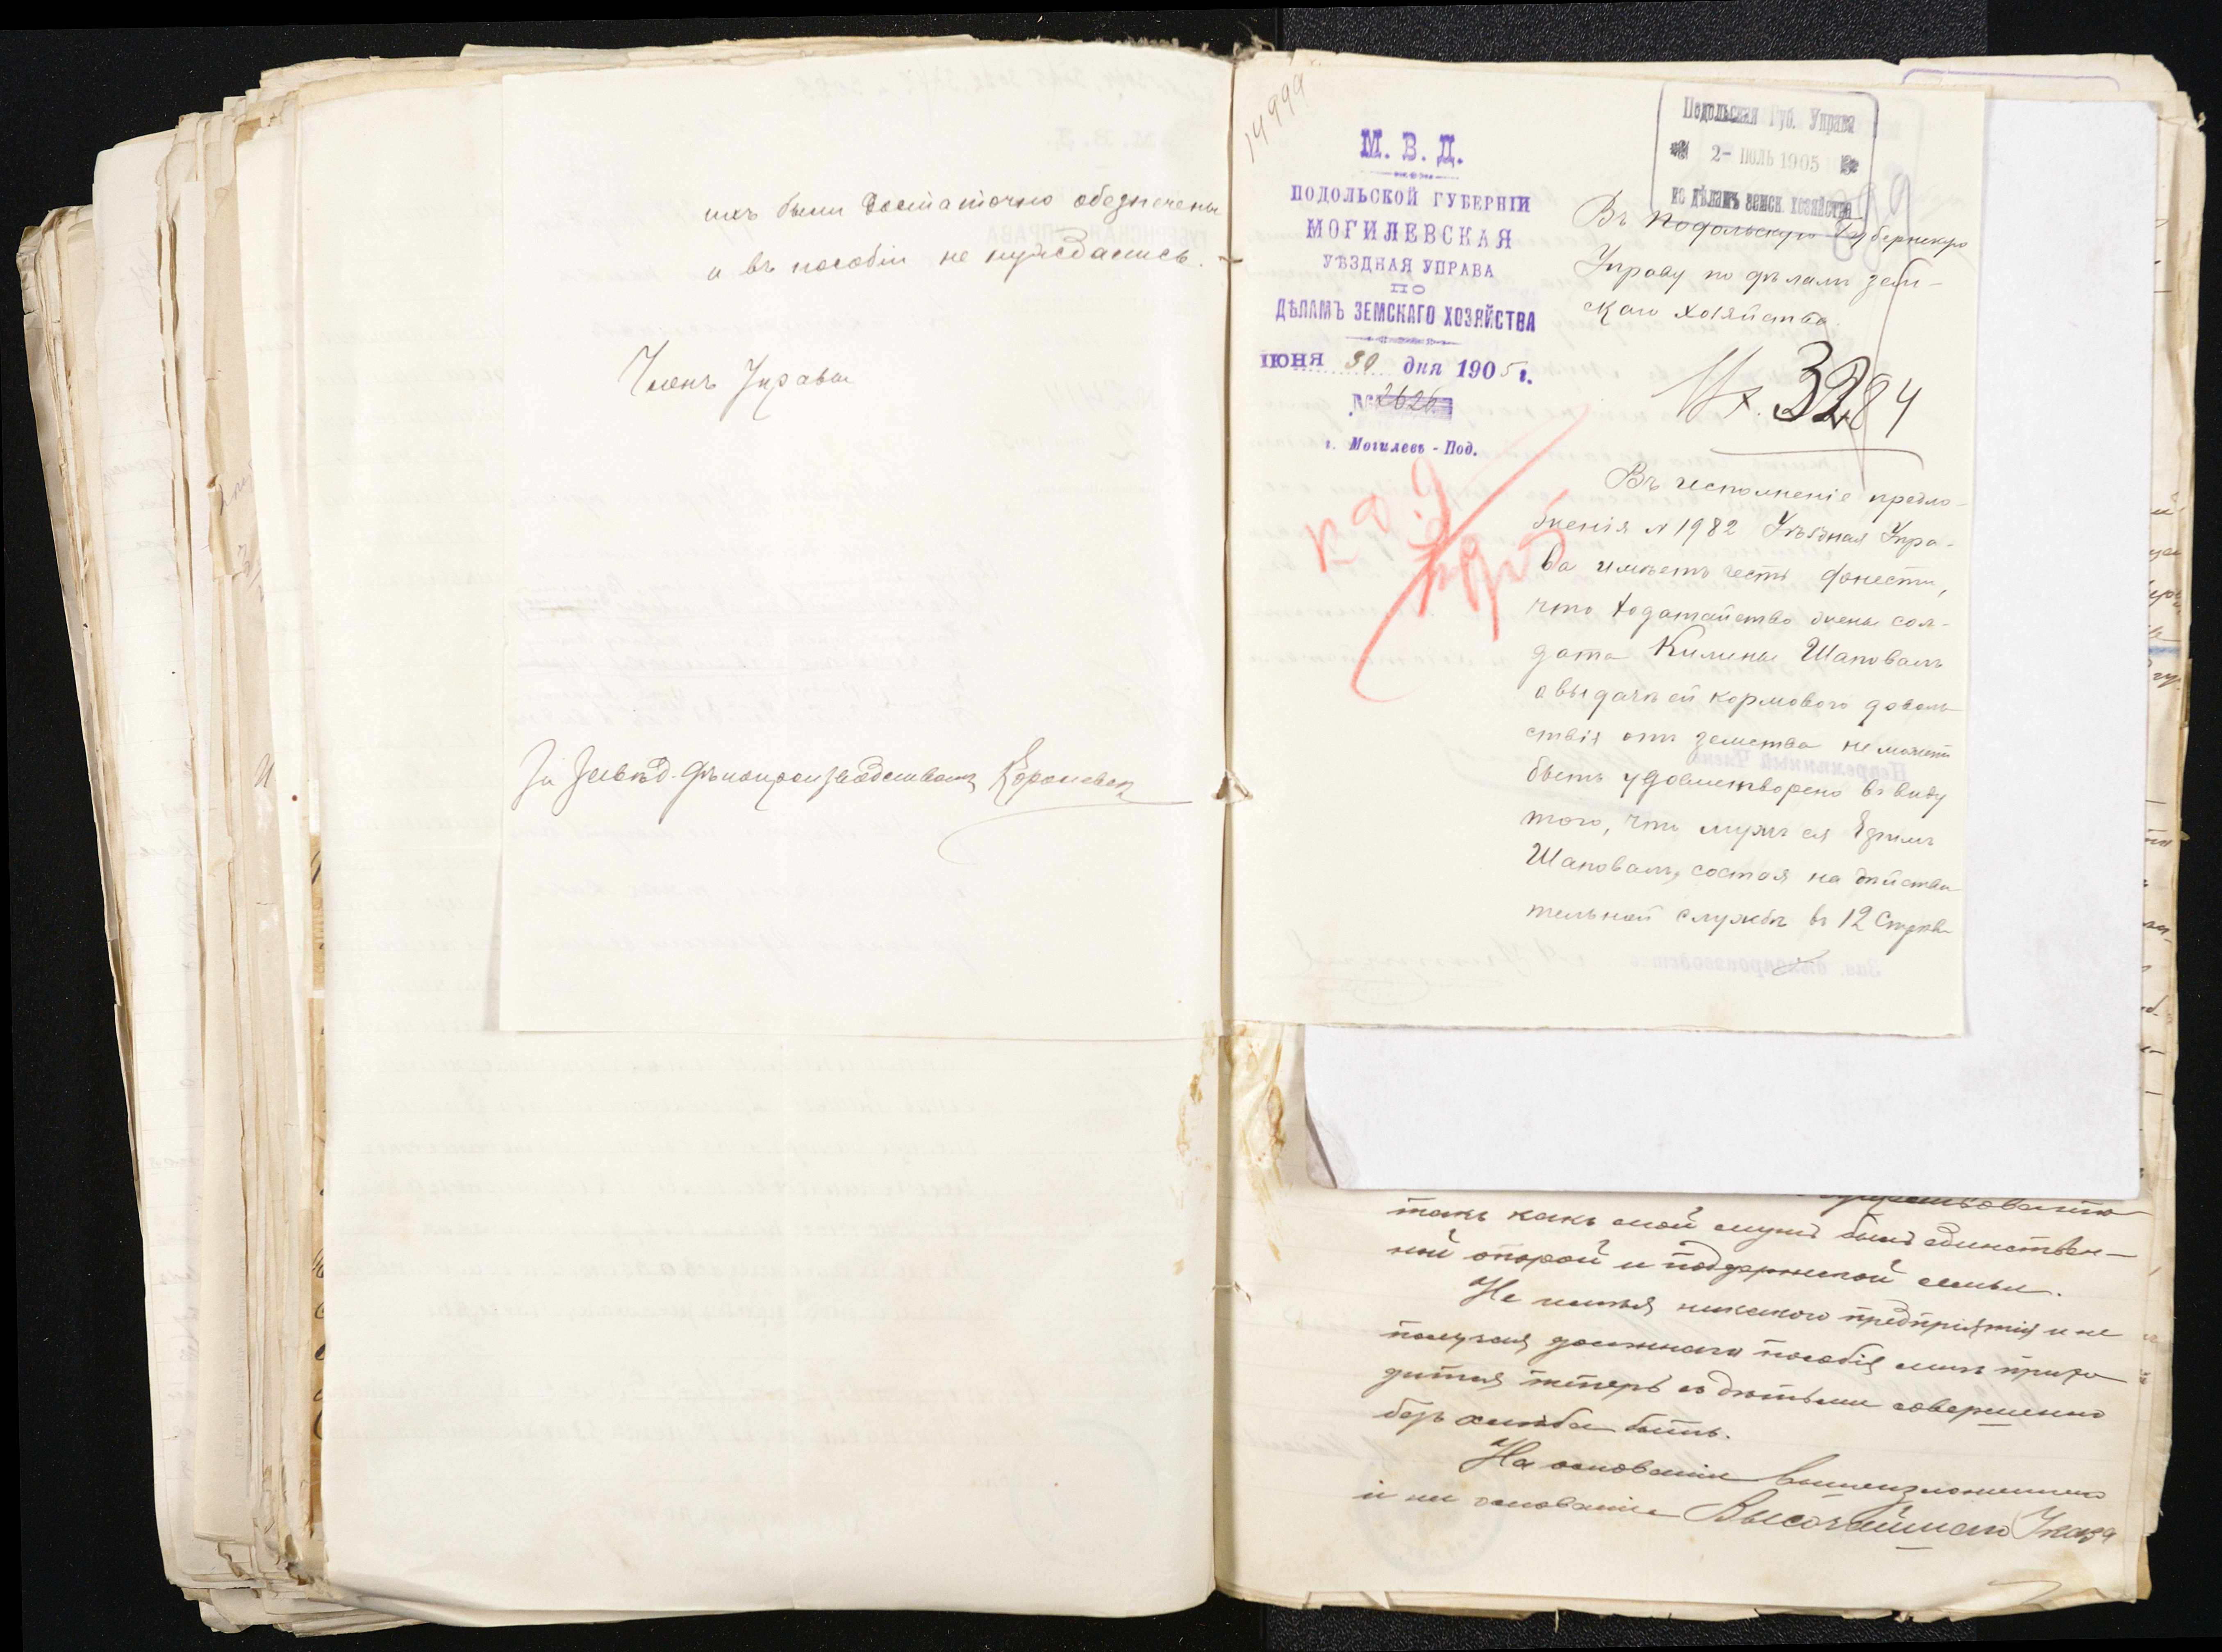 ихъ были достаточно обезпечены
и въ пособіи не нуждались.
Членъ Управы
За Завѣд. дѣлопроизводствомъ
14999
М. В. Д.
ПОДОЛЬСКОЙ ГУБЕРНІИ
МОГИЛЕВСКАЯ
УѢЗДНАЯ УПРАВА
ПО
ДѢЛАМЪ ЗЕМСКАГО ХОЗЯЙСТВА
ІЮНЯ 30 дня 1905 г.
№ 2626
г. Могилевъ - Под.
Подольская Губ. Управа
2- ІЮЛЬ 1905
по дѣламъ земск. хозяйства
Въ Подольскую Губернскую
Управу по дѣламъ зем-
скаго хозяйства.
Вх. 3284
Въ исполненіе предло-
женія № 1982 Уѣздная Упра-
ва имѣетъ честь донести,
что ходатайство жены сол-
дата Килины Шаповалъ
о выдачѣ ей кормового доволь
ствія отъ земства не можетъ
быть удовлетворено въ виду
того, что мужъ ея Ефимъ
Шаповалъ, состоя на дѣйстви
тельной службѣ въ 12 Стрѣлк
такъ какъ мой мужъ былъ единствен-
ной опорой и поддержкой семьи.
Не имѣя никакого предпріятія и не
получая должнаго пособія мнѣ прихо
дится теперь съ дѣтьми совершенно
безъ хлѣба быть.
На основаніи вышеизложеннаго
и на основаніи Высочайшаго Указа